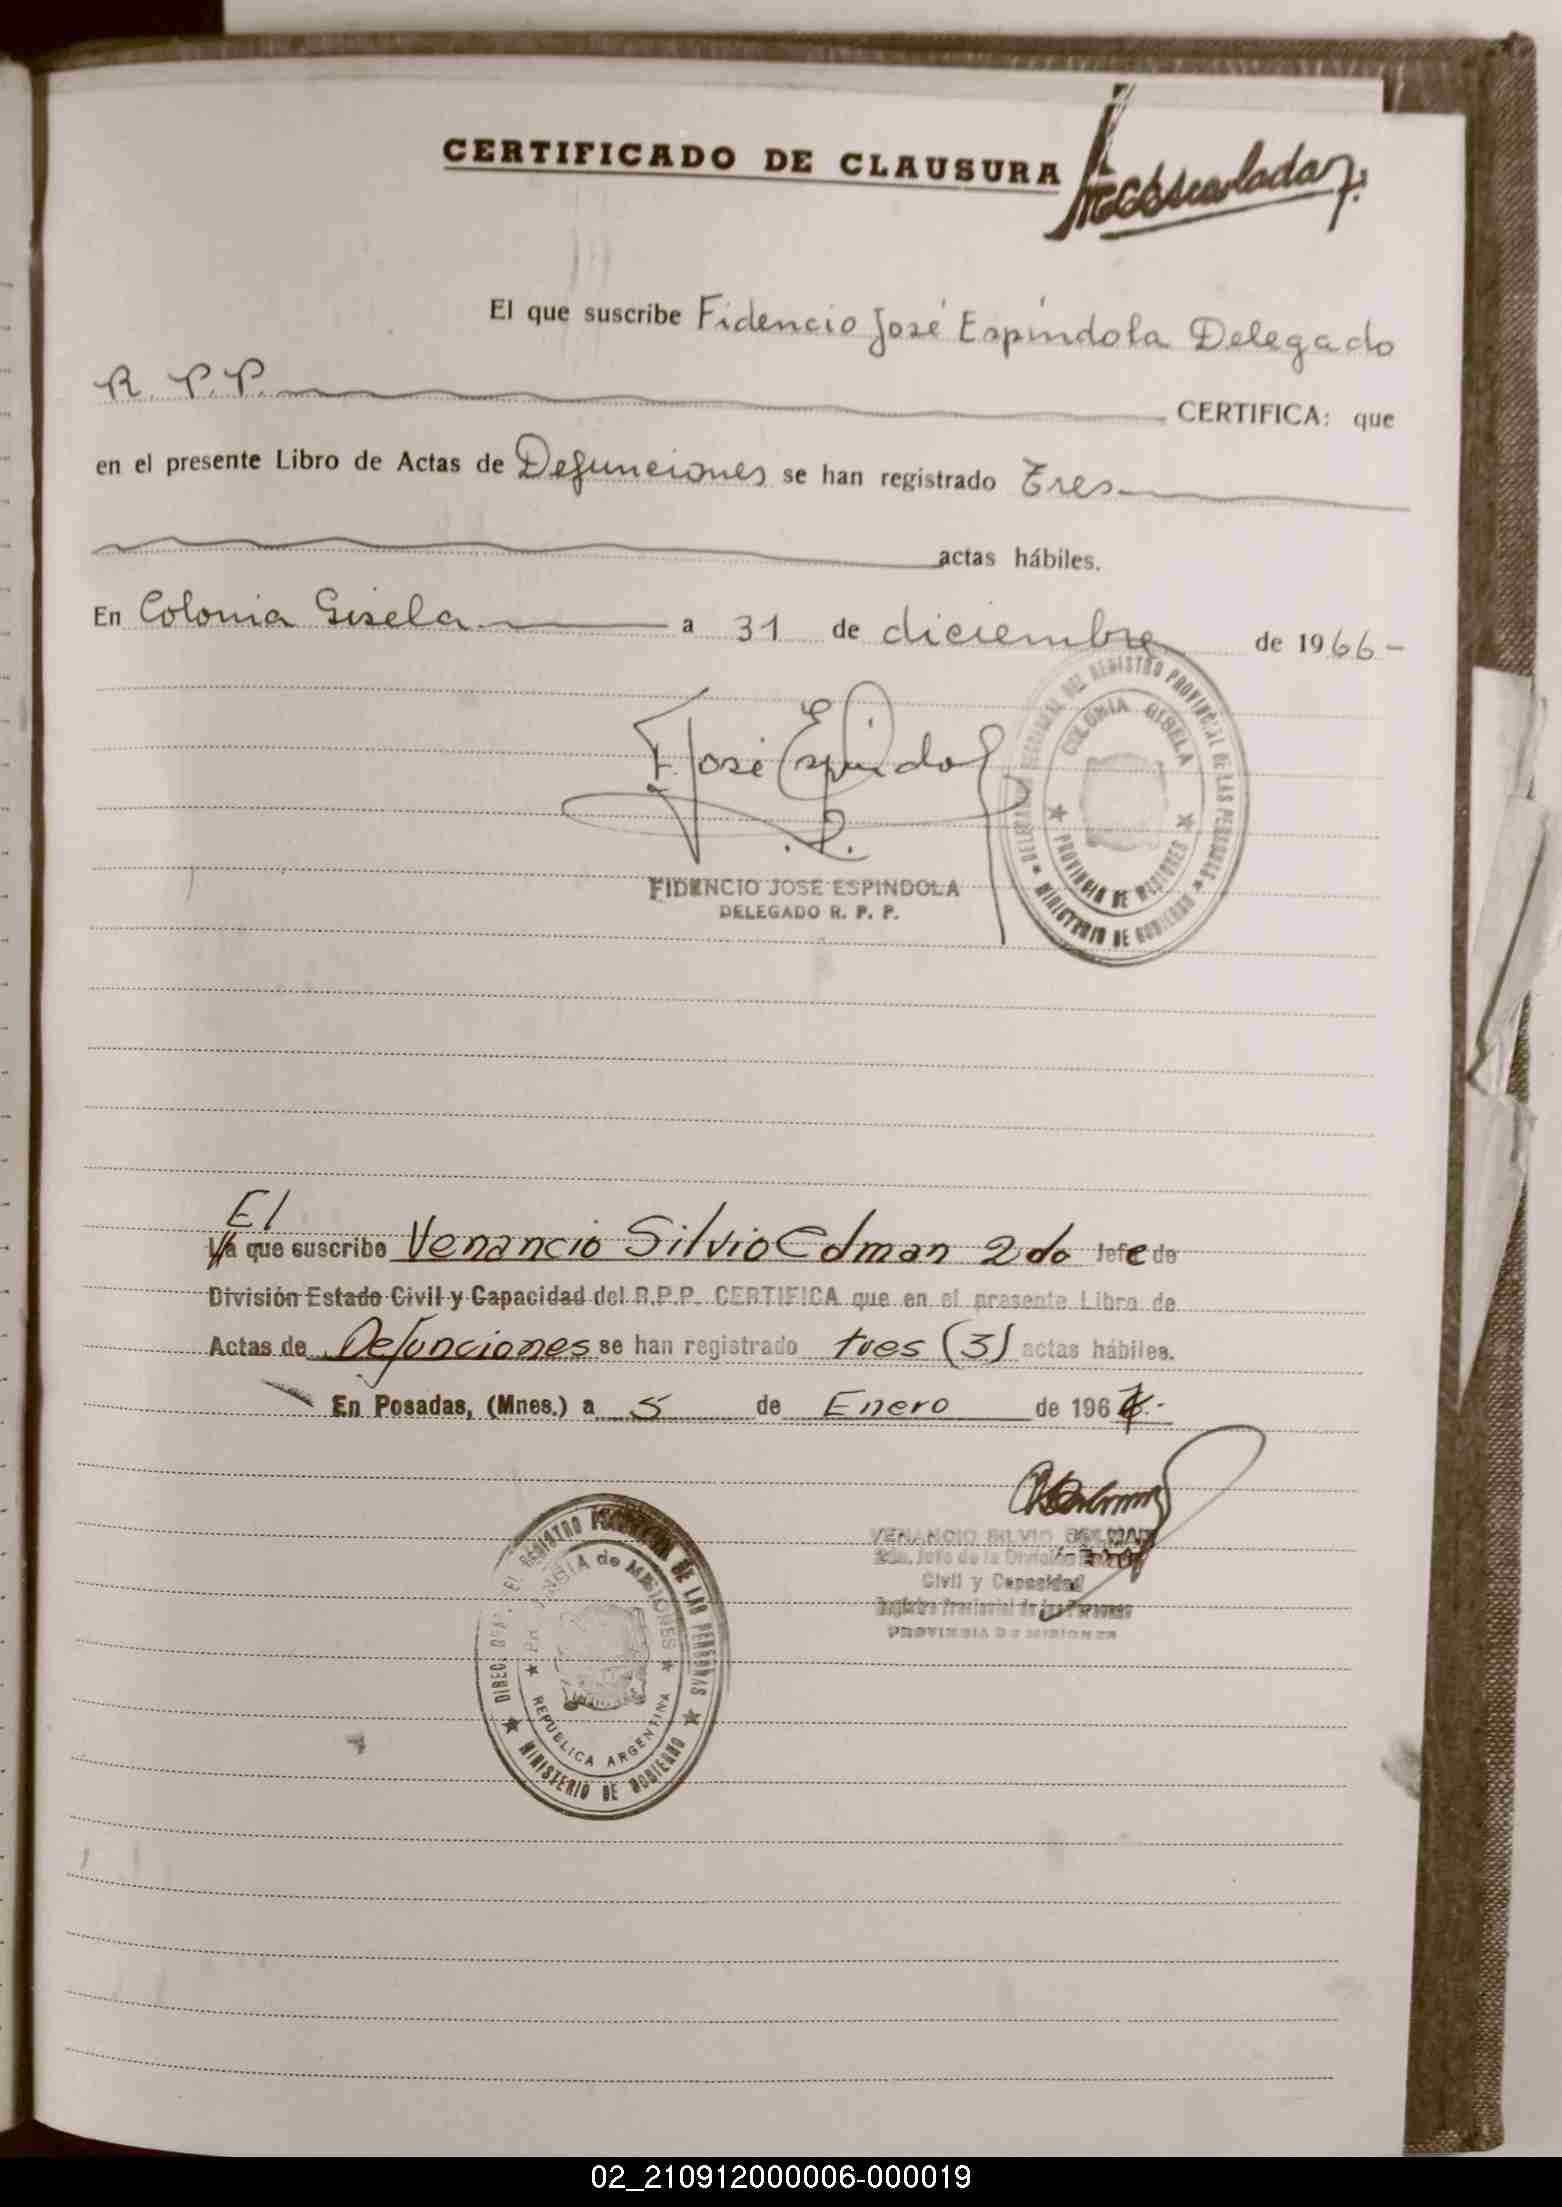 CERTIFICADO DE CLAUSURA
El que suscribe Fidencio José Espíndola Delegado
R. P. P. CERTIFICA: que
en el presente Libro de Actas de Defunciones se han registrado Tres
actas hábiles.
En Colonia Gisela a 31 de diciembre de 1966-
F. José Espíndola
FIDENCIO JOSE ESPINDOLA
DELEGADO R. P. P.
DEL REGISTRO PROVINCIAL DE LAS PERSONAS
COLONIA GISELA
PROVINCIA DE MISIONES
MINISTERIO DE GOBIERNO
El
La que suscribe Venancio Silvio Edman 2do Jefe de
División Estado Civil y Capacidad del R.P.P. CERTIFICA que en el presente Libro de
Actas de Defunciones se han registrado tres (3) actas hábiles.
En Posadas, (Mnes.) a 5 de Enero de 1967.-
VENANCIO SILVIO
2do. Jefe de la División
Civil y Capacidad
Registro Provincial de las Personas
PROVINCIA DE MISIONES
REGISTRO PROVINCIAL DE LAS PERSONAS
de MISIONES
REPUBLICA ARGENTINA
MINISTERIO DE GOBIERNO
02_210912000006-000019